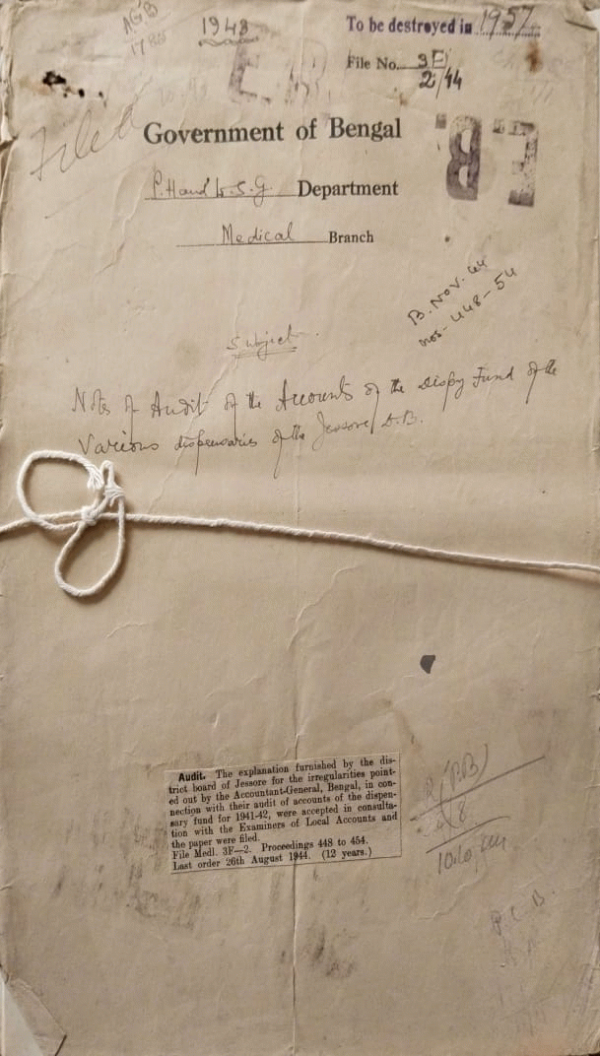 1943
To be destroyed in 1957
File No. 3F/2/44
Filed
Government of Bengal
P. H and L. S. G. Department
Medical Branch
B. Nov. 44
nos- 448-54
Subject.
Notes of Audit of the Accounts of the Dispy Fund of the
Various dispensaries of the Jessore D.B.
Audit. The explanation furnished by the dis-
trict board of Jessore for the irregularities point-
ed out by the Accountant-General, Bengal, in con-
nection with their audit of accounts of the dispen-
sary fund for 1941-42, were accepted in consulta-
tion with the Examiners of Local Accounts and
the paper were filed.
File Medl. 3F—2. Proceedings 448 to 454.
Last order 26th August 1944. (12 years.)